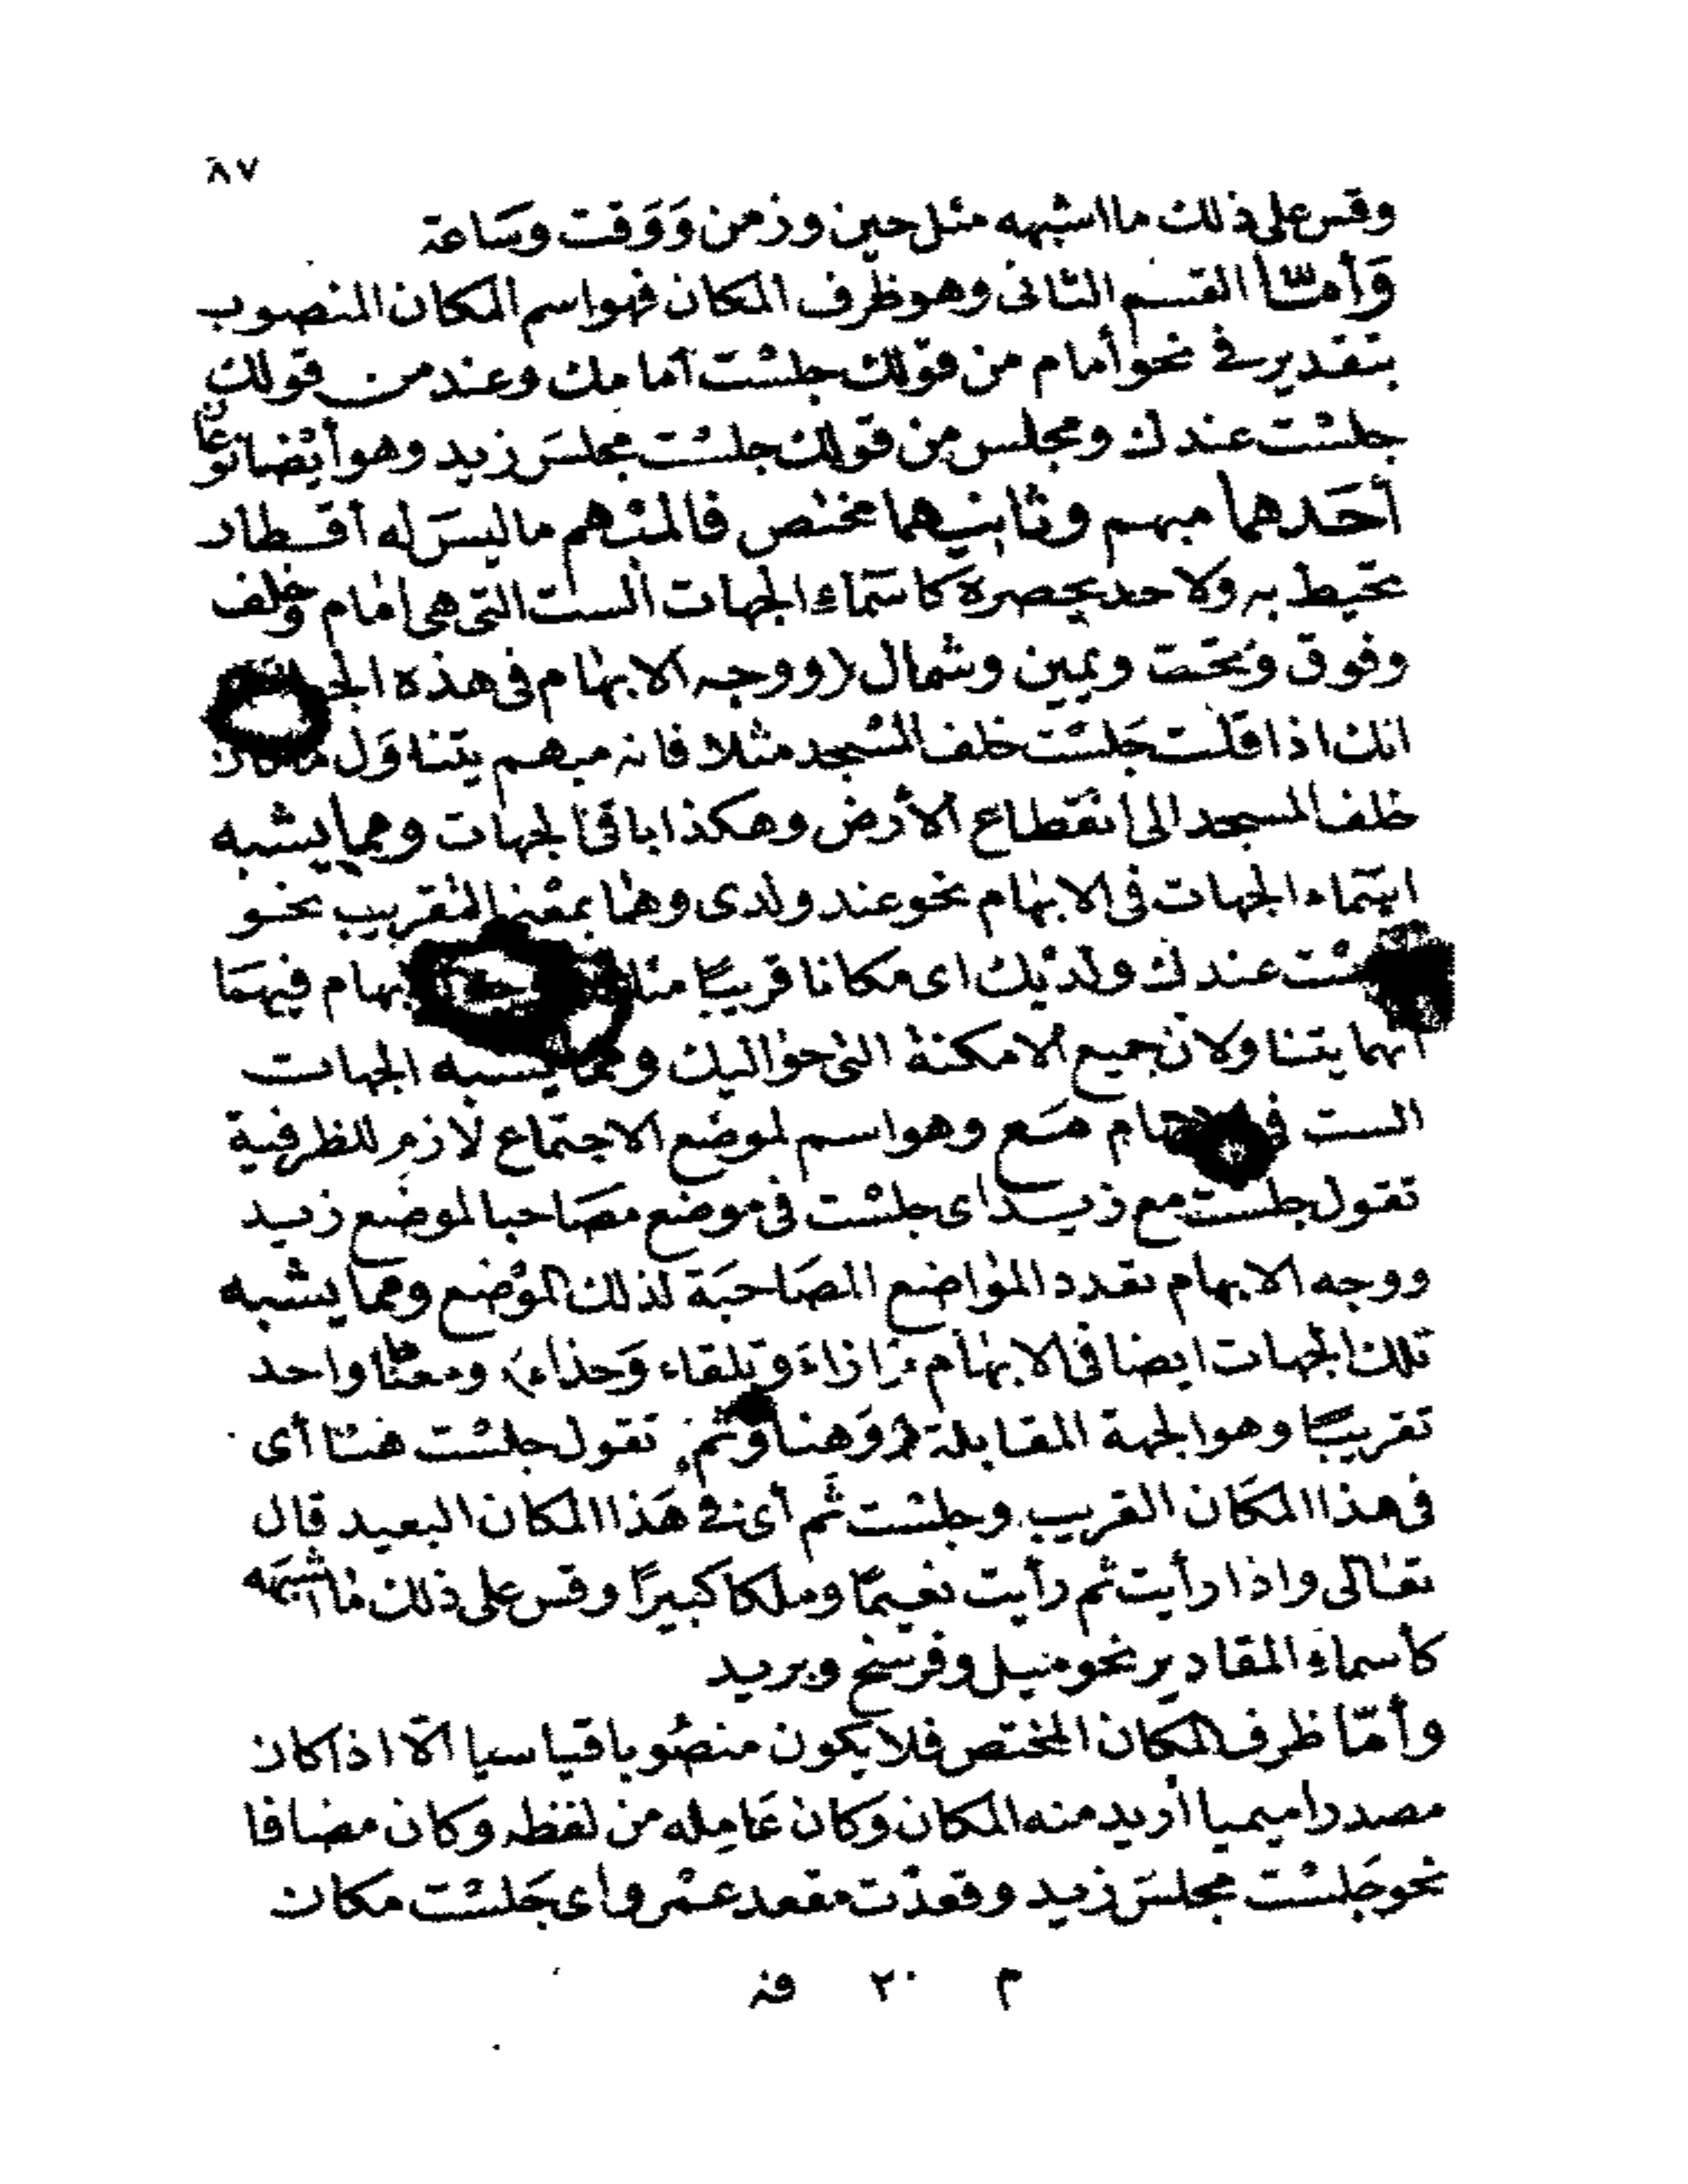 ٨٧
وقس على ذلك ما اشبهه مثل حين وزمن وَوَقت وسَاعة
وَأمّا القسم الثانى وهو ظرف المكان فهو اسم المكان المنصوب
بتقدير فى نحو أمام من قولك جلسْت أمامك وعند من قولك
جلسْت عندك ومجلس من قولك جلسْت مجلسَ زيد وهو أيْضا نوعَان
أحَدهما مبهم وثانيهما مختص فالمبْهم ما ليسَ له أقطار
تحيط به ولا حد يحصره كاسمَاء الجهات الست التى هى أمام وخلف
وفوق وتحت ويمين وشمال ووجه الابهام فى هذه
انك اذا قلت جَلسْت خلف المسْجد مثلا فانه مبهم يتناوَل
خلف المسجد الى انقطاع الأرض وهكذا باقى الجهات ومما يشبه
اسَماء الجهات فى الابهام نحو عند ولدى وهما بمعْنى القريب نحو
عندك ولديْك اى مكانا قريبًا فيهمَا
انهما يتناولان جميع الامكنة التى حواليك ومما يشبه الجهات
الست مَع وهو اسم لموضع الاجتماع لازم للظرفية
تقول جلسْت مع زيد اى جلسْت فى موضع مصَاحبا لموضع زيد
ووجه الابهام تعدد المواضع المصَاحبَة لذلك الموْضع ومما يشبه
تلك الجهات ايضا فى الابهام ازاءَ وتِلقاء وَحذاء ومعنَاها واحد
تقريبًا وهو الجهة المقابلة وَهنا وثَم تقول جلسْت هنا أى
فى هذا المكَان القريب وجلسْت ثَم أى فى هَذا المكان البعيد قال
تعَالى واذا رأيت ثم رأيت نعيمًا وملكا كبيرًا وقس على ذلك مَا اشبهَه
كأسماء المقادير نحو ميل وفرسخ وبريد
وأمّا ظرف المكان المختص فلا يكون منصُوبا قياسيا الّا اذا كان
مصدرا ميميا أريد منه المكان وَكان عَامِله من لفظه وَكان مضافا
نحو جَلسْت مجلسَ زيد وقعدْت مقعد عمْرو اى جَلسْت مكان
م ٢٠ فـ